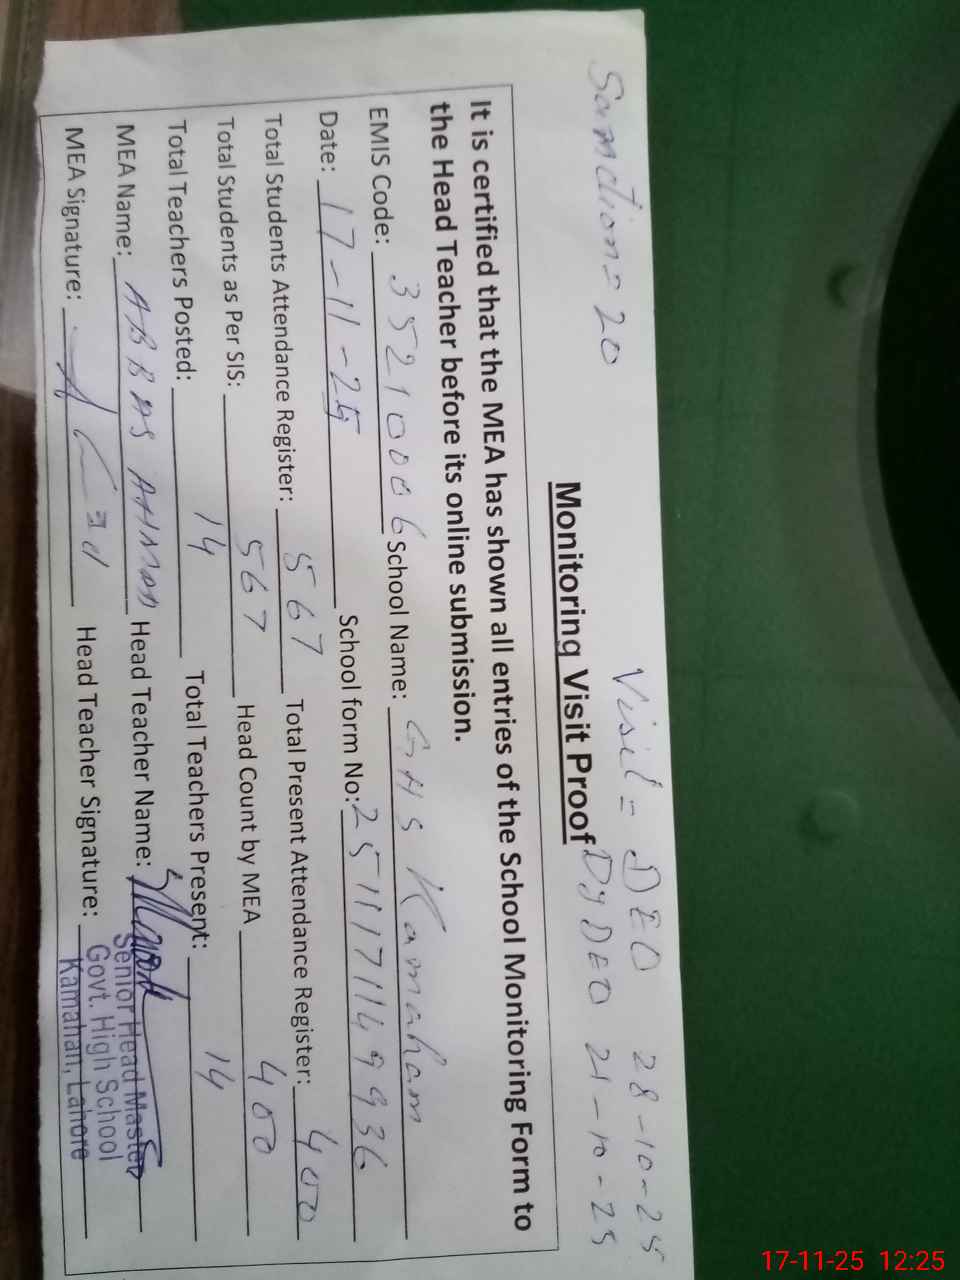 Sanction = 20
Visit = DEO 28-10-25
DyDEO 21-10-25
Monitoring Visit Proof
It is certified that the MEA has shown all entries of the School Monitoring Form to
the Head Teacher before its online submission.
EMIS Code: 35210006 School Name: GHS Kamaham
Date: 17-11-25 School form No: 2511171149936
Total Students Attendance Register: 567 Total Present Attendance Register: 400
Total Students as Per SIS: 567 Head Count by MEA 400
Total Teachers Posted: 14 Total Teachers Present: 14
MEA Name: ABBAS AHMAD Head Teacher Name:
MEA Signature: Head Teacher Signature:
Senior Head Master
Govt. High School
Kamahan, Lahore
17-11-25 12:25